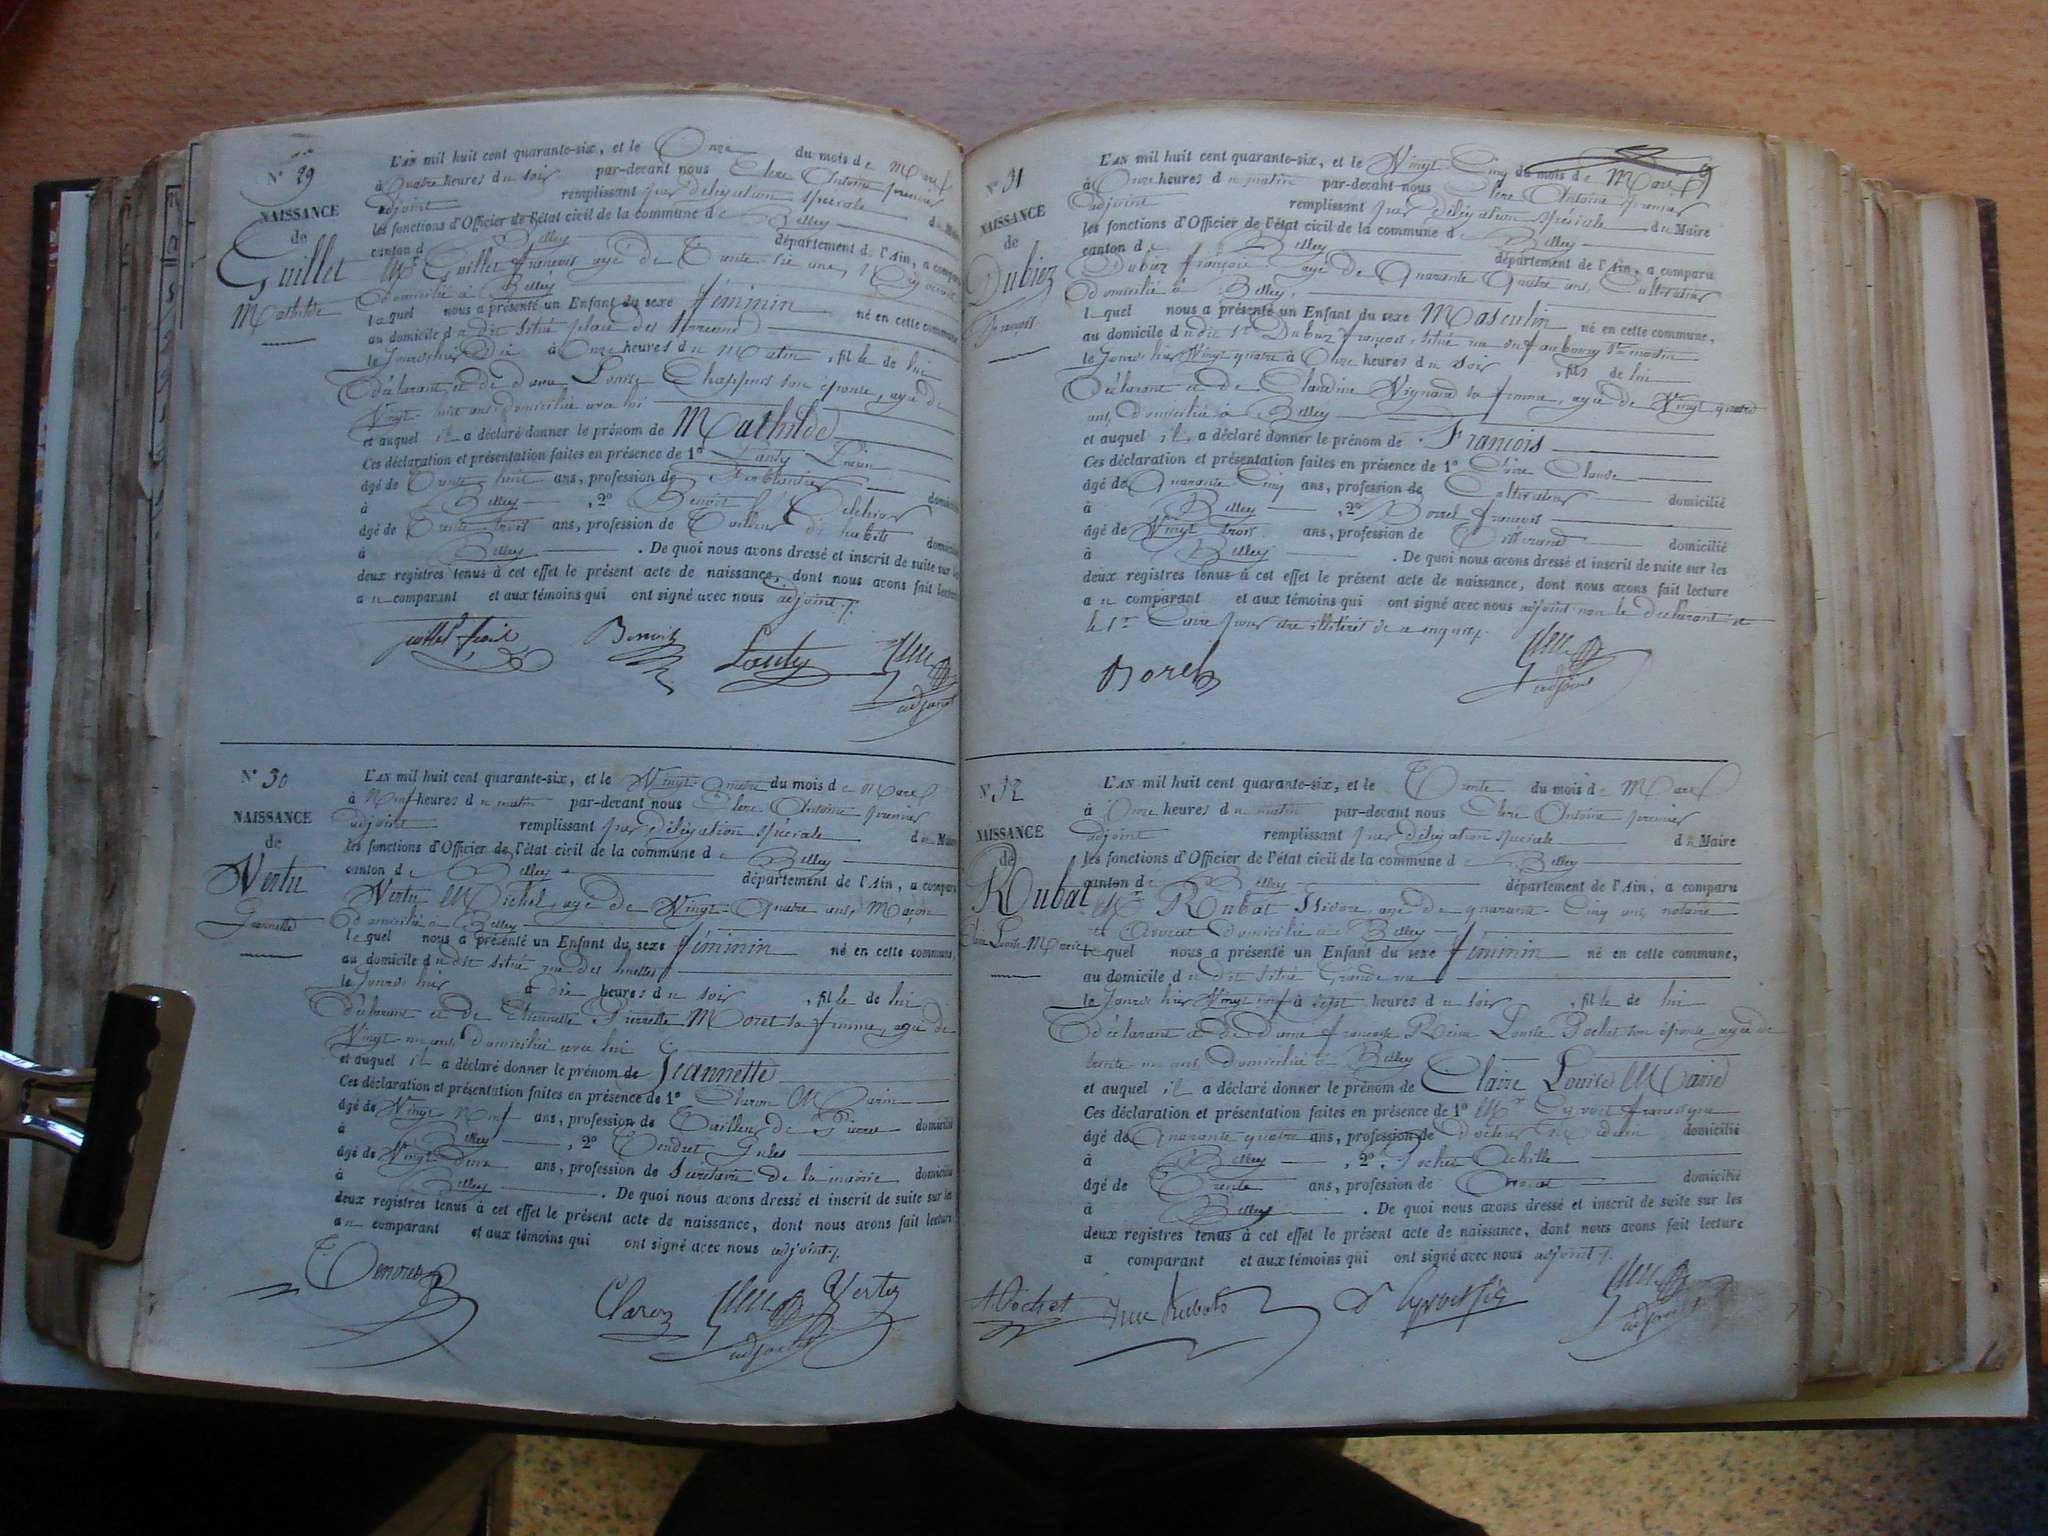 N° 29
NAISSANCE
de
Guillet
Mathilde
L'AN mil huit cent quarante-six, et le Onze du mois de Mars
à quatre heures du soir par-devant nous Clerc Antoine premier
adjoint remplissant par délégation spéciale du Maire
les fonctions d'Officier de l'état civil de la commune de Belley
canton de Belley département de l'Ain, a comparu
Mr Guillet françois agé de Trente six ans,
domicilié à Belley
lequel nous a présenté un Enfant du sexe féminin né en cette commune
au domicile du dit situé place des terreaux
le Jourd'hier Dix à Onze heures du Matin, fille de lui
déclarant et de dame Louise son épouse, agée de
Vingt-huit ans domiciliée avec lui
et auquel il a déclaré donner le prénom de Mathilde
Ces déclaration et présentation faites en présence de 1° Lauty
âgé de Trente huit ans, profession de Ferblantier domicilié
à Belley, 2° Benoit
âgé de Trente-trois ans, profession de Tailleur d'habits domicilié
à Belley. De quoi nous avons dressé et inscrit de suite sur les
deux registres tenus à cet effet le présent acte de naissance, dont nous avons fait lecture
au comparant et aux témoins qui ont signé avec nous adjoint
Benoit Lauty Clerc
adjoint
N° 30
NAISSANCE
de
Vertu
Jeannette
L'AN mil huit cent quarante-six, et le Vingt-quatre du mois de Mars
à Neuf heures du matin par-devant nous Clerc Antoine premier
adjoint remplissant par délégation spéciale du Maire
les fonctions d'Officier de l'état civil de la commune de Belley
canton de Belley département de l'Ain, a comparu
Vertu Michel, agé de Vingt-Quatre ans, Maçon
domicilié à Belley
lequel nous a présenté un Enfant du sexe féminin né en cette commune,
au domicile du dit situé rue des
le Jourd'hier à dix heures du soir, fille de lui
déclarant et de Pierrette Moret sa femme, agée de
Vingt-un ans domiciliée avec lui
et auquel il a déclaré donner le prénom de Jeannette
Ces déclaration et présentation faites en présence de 1° Claron Marin
âgé de Vingt Neuf ans, profession de Tailleur de Pierre domicilié
à Belley, 2° Tendret Jules
âgé de Vingt-deux ans, profession de Secrétaire de la mairie domicilié
à Belley. De quoi nous avons dressé et inscrit de suite sur les
deux registres tenus à cet effet le présent acte de naissance, dont nous avons fait lecture
au comparant et aux témoins qui ont signé avec nous adjoint
Claron Clerc
adjoint
N° 31
NAISSANCE
de
Dubiez
François
L'AN mil huit cent quarante-six, et le Vingt Cinq du mois de Mars
à Onze heures du matin par-devant nous Clerc Antoine premier
adjoint remplissant par délégation spéciale du Maire
les fonctions d'Officier de l'état civil de la commune de Belley
canton de Belley département de l'Ain, a comparu
Dubiez françois agé de Quarante Quatre ans, Cultivateur
domicilié à Belley,
lequel nous a présenté un Enfant du sexe Masculin né en cette commune,
au domicile du dit Sr Dubiez françois, situé rue du faubourg St martin
le Jourd'hier Vingt quatre à Onze heures du soir, fils de lui
Déclarant et de Claudine Vignard sa femme, agée de Vingt quatre
ans, domiciliée à Belley
et auquel il a déclaré donner le prénom de François
Ces déclaration et présentation faites en présence de 1° Claude
âgé de Quarante Cinq ans, profession de Cultivateur domicilié
à Belley, 2° Borel françois
âgé de Vingt trois ans, profession de Tisserand domicilié
à Belley. De quoi nous avons dressé et inscrit de suite sur les
deux registres tenus à cet effet le présent acte de naissance, dont nous avons fait lecture
au comparant et aux témoins qui ont signé avec nous adjoint non le déclarant et
le Sr pour être illitérés de ce enquis
Borel Clerc
adjoint
N° 32
NAISSANCE
de
Rubat
Claire Louise Marie
L'AN mil huit cent quarante-six, et le Trente du mois de Mars
à Onze heures du matin par-devant nous Clerc Antoine premier
adjoint remplissant par délégation spéciale du Maire
les fonctions d'Officier de l'état civil de la commune de Belley
canton de Belley département de l'Ain, a comparu
Mr Rubat Isidore, agé de quarante-Cinq ans, notaire
et Avocat domicilié à Belley
lequel nous a présenté un Enfant du sexe féminin né en cette commune,
au domicile du dit situé Grande rue
le Jourd'hier Vingt neuf à sept heures du soir, fille de lui
déclarant et de dame françoise Reine Louise Pochet son épouse, agée de
trente un ans, domiciliée à Belley
et auquel il a déclaré donner le prénom de Claire Louise Marie
Ces déclaration et présentation faites en présence de 1° Mr Cyvoct
âgé de Quarante quatre ans, profession de docteur Médecin domicilié
à Belley, 2° Pochet Achille
âgé de Trente ans, profession de Avocat domicilié
à Belley. De quoi nous avons dressé et inscrit de suite sur les
deux registres tenus à cet effet le présent acte de naissance, dont nous avons fait lecture
a comparant et aux témoins qui ont signé avec nous adjoint
A. Pochet Clerc
adjoint